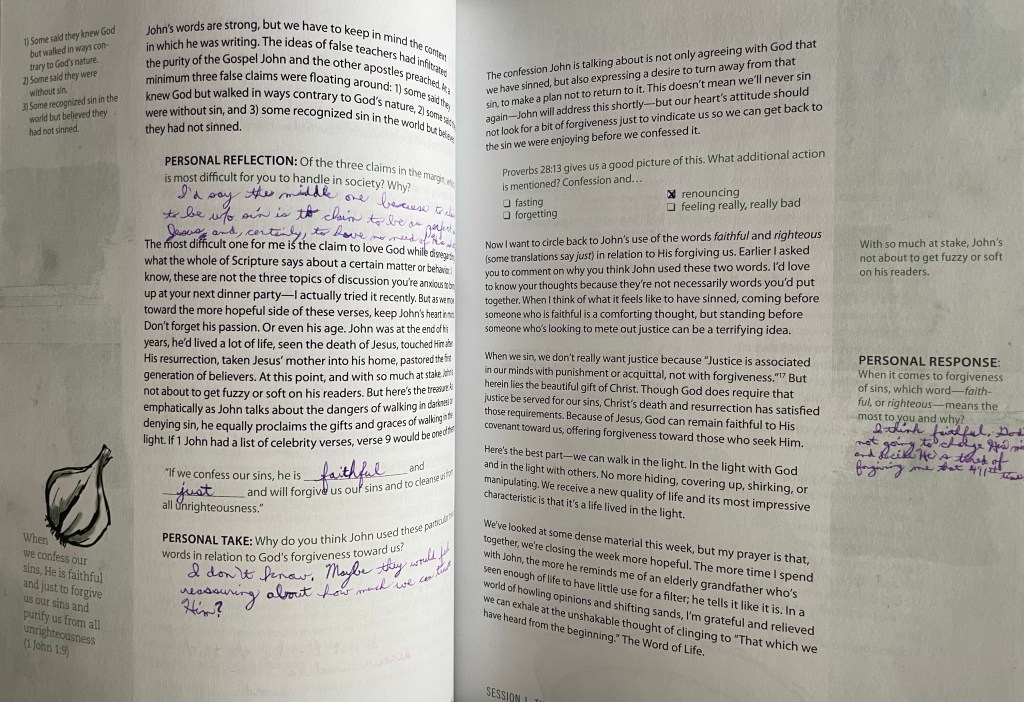 1) Some said they knew God
but walked in ways con-
trary to God's nature.
2) Some said they were
without sin.
3) Some recognized sin in the
world but believed they
had not sinned.
John's words are strong, but we have to keep in mind the context
in which he was writing. The ideas of false teachers had infiltrated
the purity of the Gospel John and the other apostles preached. At a
minimum three false claims were floating around: 1) some said they
knew God but walked in ways contrary to God's nature, 2) some said
were without sin, and 3) some recognized sin in the world but believe
they had not sinned.
PERSONAL REFLECTION: Of the three claims in the margin,
is most difficult for you to handle in society? Why?
I'd say the middle one because to
to be w/o sin is to claim to be as perfect
Jesus and, certainly, to have no need of
The most difficult one for me is the claim to love God while disregarding
what the whole of Scripture says about a certain matter or behavior. I
know, these are not the three topics of discussion you're anxious to bring
up at your next dinner party—I actually tried it recently. But as we move
toward the more hopeful side of these verses, keep John's heart in
Don't forget his passion. Or even his age. John was at the end of his
years, he'd lived a lot of life, seen the death of Jesus, touched Him after
His resurrection, taken Jesus' mother into his home, pastored the first
generation of believers. At this point, and with so much at stake, John's
not about to get fuzzy or soft on his readers. But here's the treasure: As
emphatically as John talks about the dangers of walking in darkness
denying sin, he equally proclaims the gifts and graces of walking in the
light. If 1 John had a list of celebrity verses, verse 9 would be one of them.
"If we confess our sins, he is faithful and
just and will forgive us our sins and to cleanse us from
all unrighteousness."
PERSONAL TAKE: Why do you think John used these particular
words in relation to God's forgiveness toward us?
I don't know. Maybe they would feel
reassuring about how much we can trust
Him?
When
we confess our
sins, He is faithful
and just to forgive
us our sins and
purify us from all
unrighteousness
(1 John 1:9)
The confession John is talking about is not only agreeing with God that
we have sinned, but also expressing a desire to turn away from that
sin, to make a plan not to return to it. This doesn't mean we'll never sin
again—John will address this shortly—but our heart's attitude should
not look for a bit of forgiveness just to vindicate us so we can get back to
the sin we were enjoying before we confessed it.
Proverbs 28:13 gives us a good picture of this. What additional action
is mentioned? Confession and...
☐ fasting
☐ forgetting
☒ renouncing
☐ feeling really, really bad
Now I want to circle back to John's use of the words faithful and righteous
(some translations say just) in relation to His forgiving us. Earlier I asked
you to comment on why you think John used these two words. I'd love
to know your thoughts because they're not necessarily words you'd put
together. When I think of what it feels like to have sinned, coming before
someone who is faithful is a comforting thought, but standing before
someone who's looking to mete out justice can be a terrifying idea.
When we sin, we don't really want justice because "Justice is associated
in our minds with punishment or acquittal, not with forgiveness."17 But
herein lies the beautiful gift of Christ. Though God does require that
justice be served for our sins, Christ's death and resurrection has satisfied
those requirements. Because of Jesus, God can remain faithful to His
covenant toward us, offering forgiveness toward those who seek Him.
Here's the best part—we can walk in the light. In the light with God
and in the light with others. No more hiding, covering up, shirking, or
manipulating. We receive a new quality of life and its most impressive
characteristic is that it's a life lived in the light.
We've looked at some dense material this week, but my prayer is that,
together, we're closing the week more hopeful. The more time I spend
with John, the more he reminds me of an elderly grandfather who's
seen enough of life to have little use for a filter; he tells it like it is. In a
world of howling opinions and shifting sands, I'm grateful and relieved
we can exhale at the unshakable thought of clinging to "That which we
have heard from the beginning." The Word of Life.
SESSION 1
With so much at stake, John's
not about to get fuzzy or soft
on his readers.
PERSONAL RESPONSE:
When it comes to forgiveness
of sins, which word—faith-
ful, or righteous—means the
most to you and why?
I think faithful. God
not going to change His
and decide He's tired of
forgiving me that 491st time